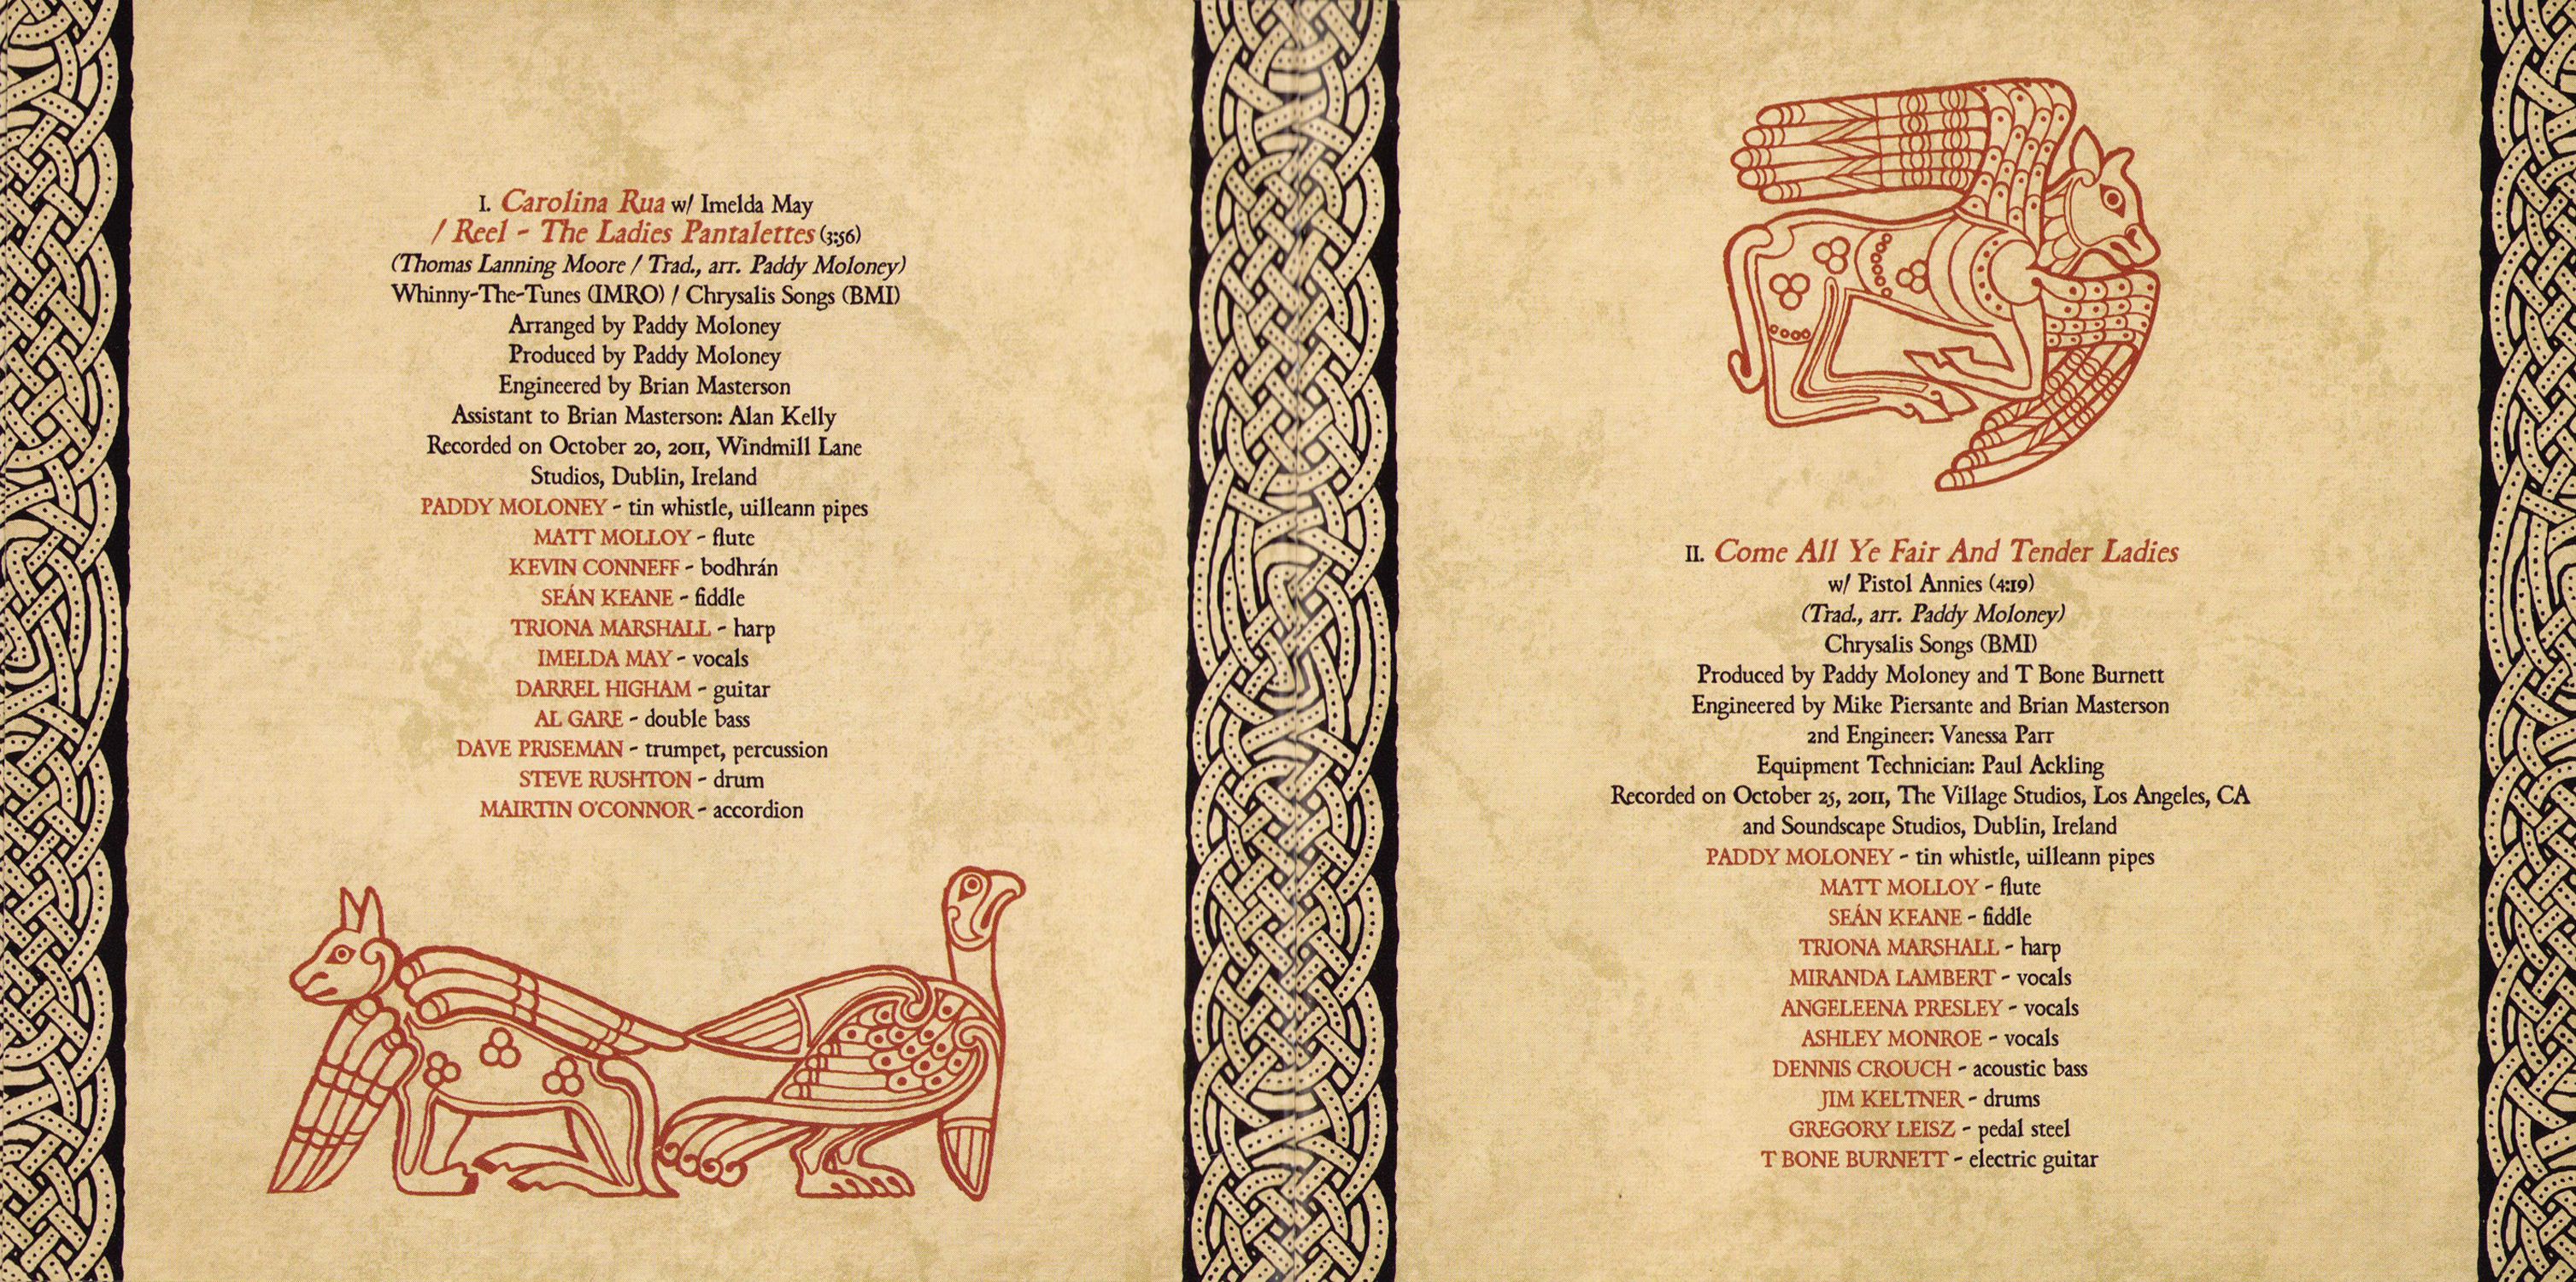 I. Carolina Rua w/ Imelda May
/ Reel - The Ladies Pantalettes (3:56)
(Thomas Lanning Moore / Trad., arr. Paddy Moloney)
Whinny-The-Tunes (IMRO) / Chrysalis Songs (BMI)
Arranged by Paddy Moloney
Produced by Paddy Moloney
Engineered by Brian Masterson
Assistant to Brian Masterson: Alan Kelly
Recorded on October 20, 2011, Windmill Lane
Studios, Dublin, Ireland
PADDY MOLONEY - tin whistle, uilleann pipes
MATT MOLLOY - flute
KEVIN CONNEFF - bodhrán
SEÁN KEANE - fiddle
TRIONA MARSHALL - harp
IMELDA MAY - vocals
DARREL HIGHAM - guitar
AL GARE - double bass
DAVE PRISEMAN - trumpet, percussion
STEVE RUSHTON - drum
MAIRTIN O'CONNOR - accordion
II. Come All Ye Fair And Tender Ladies
w/ Pistol Annies (4:19)
(Trad., arr. Paddy Moloney)
Chrysalis Songs (BMI)
Produced by Paddy Moloney and T Bone Burnett
Engineered by Mike Piersante and Brian Masterson
2nd Engineer: Vanessa Parr
Equipment Technician: Paul Ackling
Recorded on October 25, 2011, The Village Studios, Los Angeles, CA
and Soundscape Studios, Dublin, Ireland
PADDY MOLONEY - tin whistle, uilleann pipes
MATT MOLLOY - flute
SEÁN KEANE - fiddle
TRIONA MARSHALL - harp
MIRANDA LAMBERT - vocals
ANGELEENA PRESLEY - vocals
ASHLEY MONROE - vocals
DENNIS CROUCH - acoustic bass
JIM KELTNER - drums
GREGORY LEISZ - pedal steel
T BONE BURNETT - electric guitar